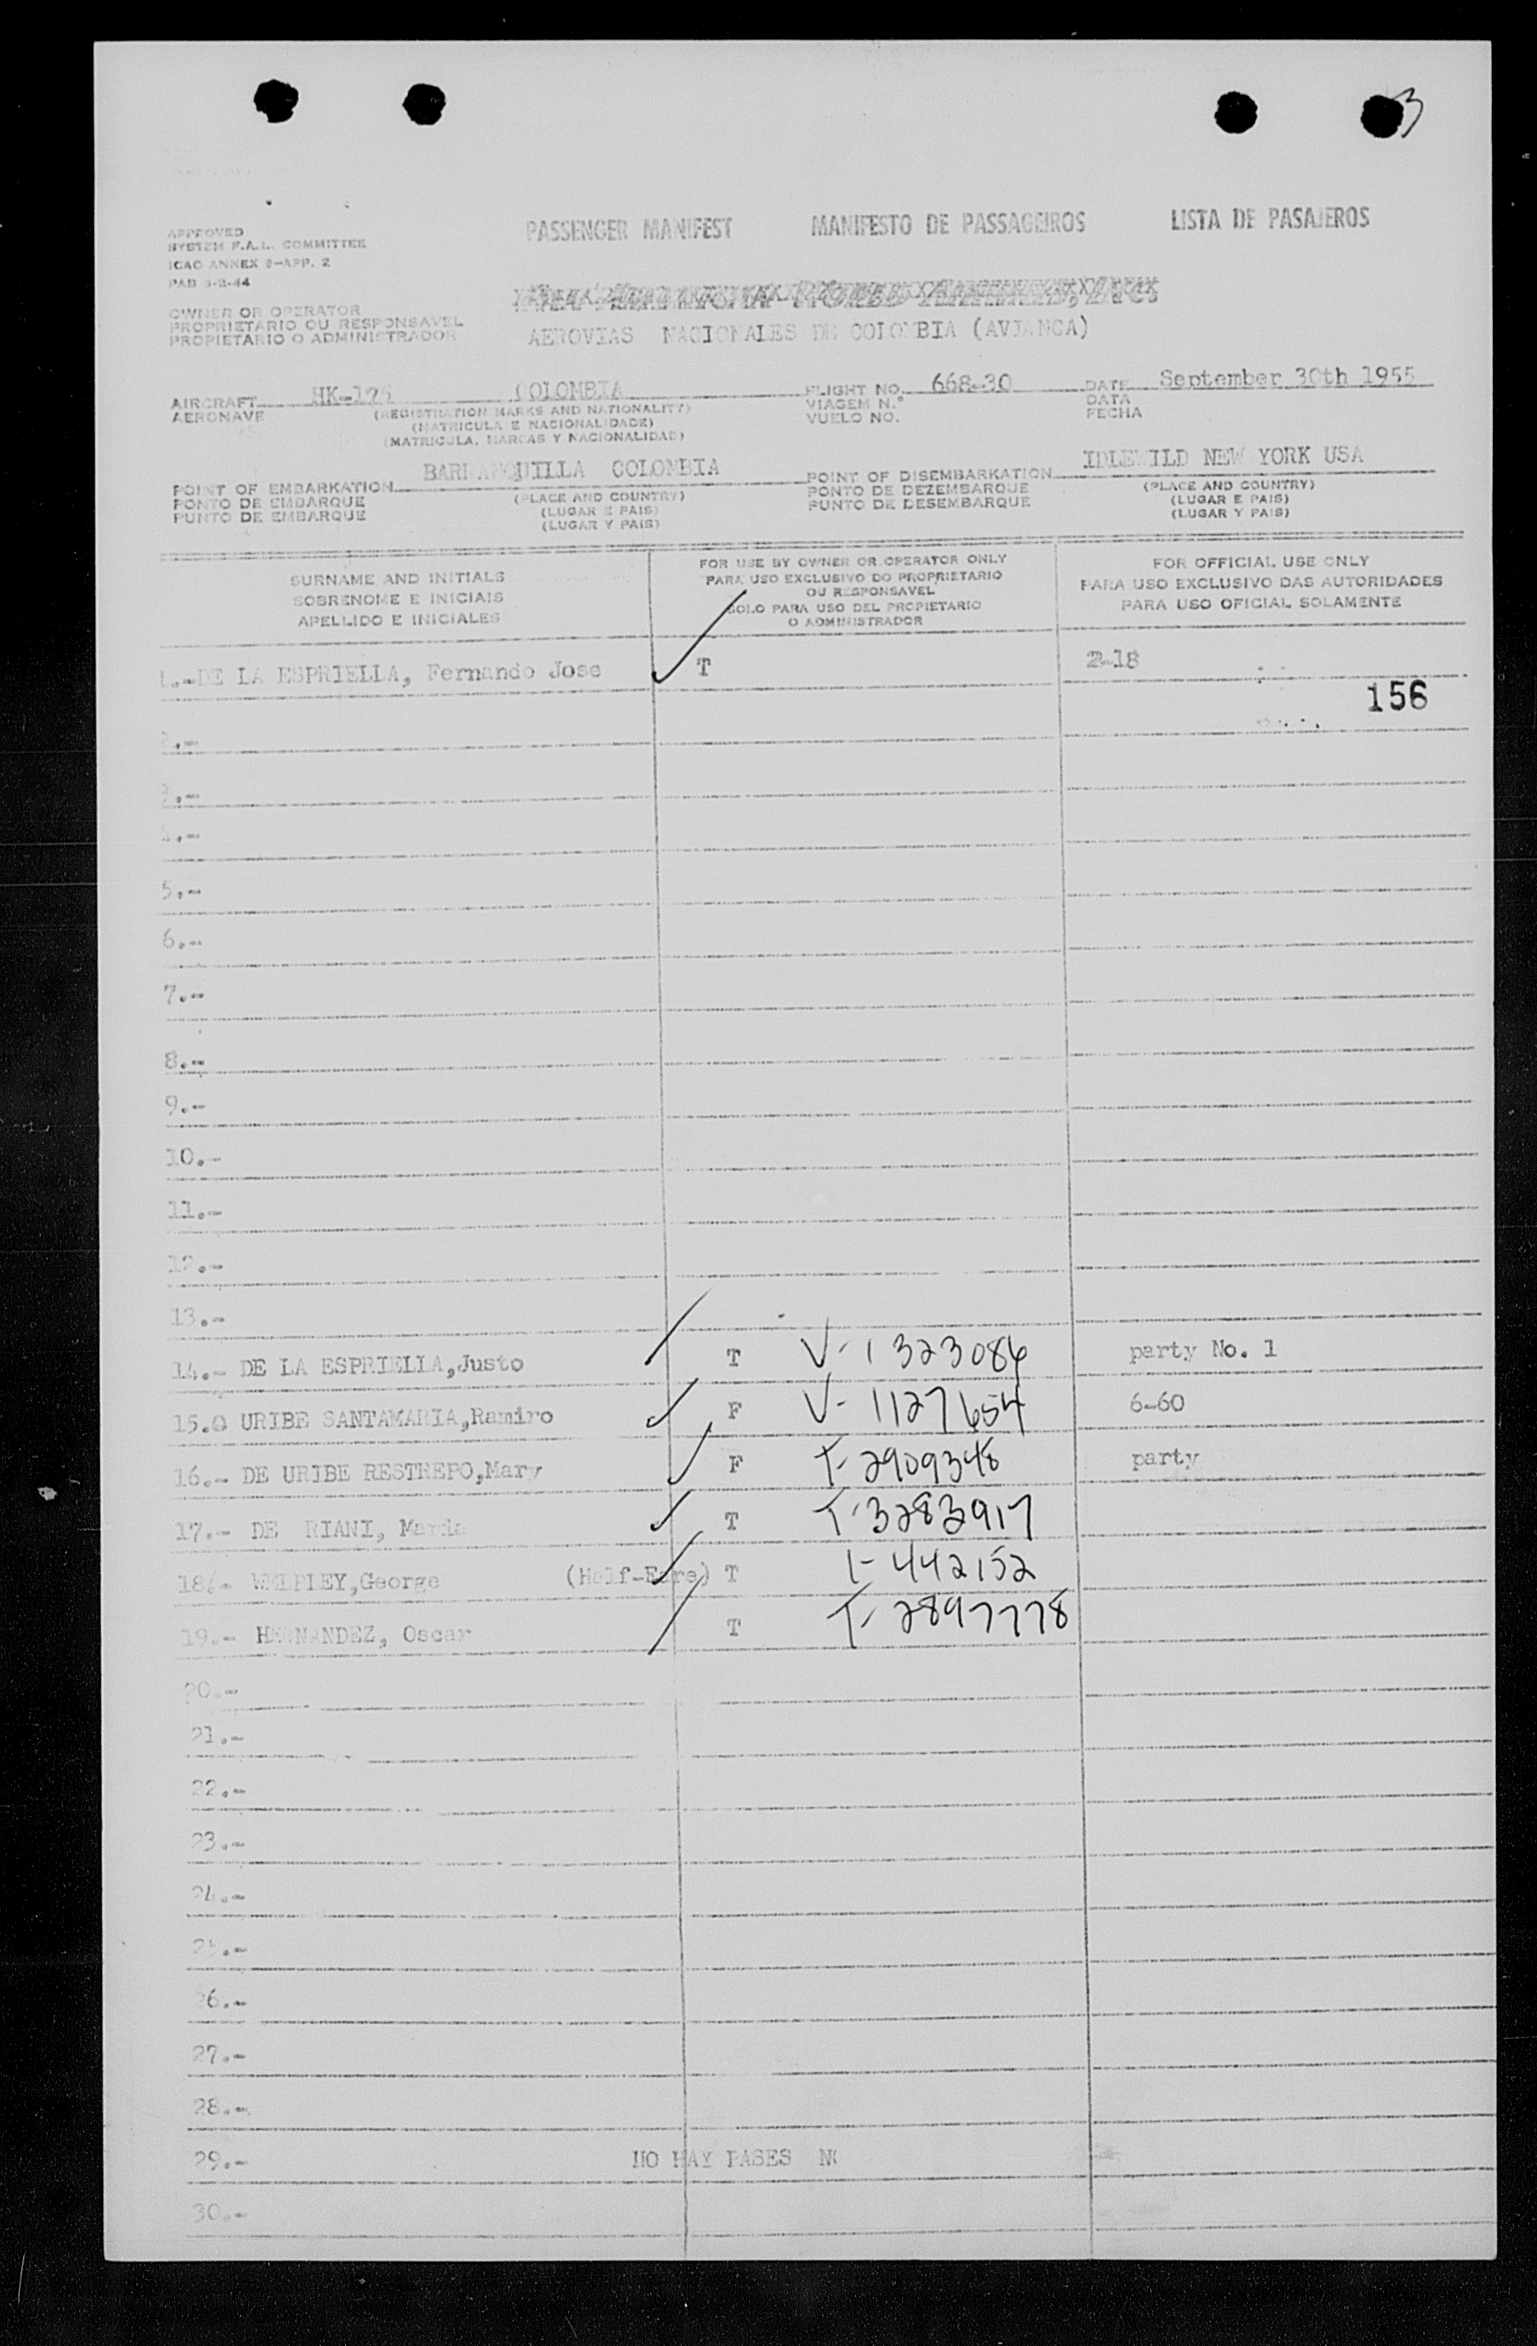 3
APPROVED
SYSTEM F.A.L. COMMITTEE
ICAO ANNEX 9-APP. 2
PASSENGER MANIFEST MANIFESTO DE PASSAGEIROS LISTA DE PASAJEROS
OWNER OR OPERATOR
PROPRIETARIO OU RESPONSAVEL
PROPIETARIO O ADMINISTRADOR
AEROVIAS NACIONALES DE COLOMBIA (AVIANCA)
AIRCRAFT COLOMBIA FLIGHT NO. 668-30 DATE September 30th 1955
AERONAVE (REGISTRATION MARKS AND NATIONALITY) VIAGEM N.° DATA
(MATRICULA E NACIONALIDADE) VUELO NO. FECHA
(MATRICULA, MARCAS Y NACIONALIDAD)
BARRANQUILLA COLOMBIA IDLEWILD NEW YORK USA
POINT OF EMBARKATION (PLACE AND COUNTRY) POINT OF DISEMBARKATION (PLACE AND COUNTRY)
PONTO DE EMBARQUE (LUGAR E PAIS) PONTO DE DEZEMBARQUE (LUGAR E PAIS)
PUNTO DE EMBARQUE (LUGAR Y PAIS) PUNTO DE DESEMBARQUE (LUGAR Y PAIS)
SURNAME AND INITIALS
SOBRENOME E INICIAIS
APELLIDO E INICIALES
FOR USE BY OWNER OR OPERATOR ONLY
PARA USO EXCLUSIVO DO PROPRIETARIO
OU RESPONSAVEL
SOLO PARA USO DEL PROPIETARIO
O ADMINISTRADOR
FOR OFFICIAL USE ONLY
PARA USO EXCLUSIVO DAS AUTORIDADES
PARA USO OFICIAL SOLAMENTE
1.-DE LA ESPRIELLA, Fernando Jose T 2-18
156
2.-
3.-
4.-
5.-
6.-
7.-
8.-
9.-
10.-
11.-
12.-
13.-
14.- DE LA ESPRIELLA,Justo T V-1323084 party No. 1
15.- URIBE SANTAMARIA,Ramiro F V-1127654 6-60
16.- DE URIBE RESTREPO,Mary F T-2909348 party
17.- DE RIANI, T T-3283917
18.- George (Half-Fare) T T-442152
19.- HERNANDEZ, Oscar T T-2897778
20.-
21.-
22.-
23.-
24.-
25.-
26.-
27.-
28.-
29.- NO HAY PASES NO
30.-